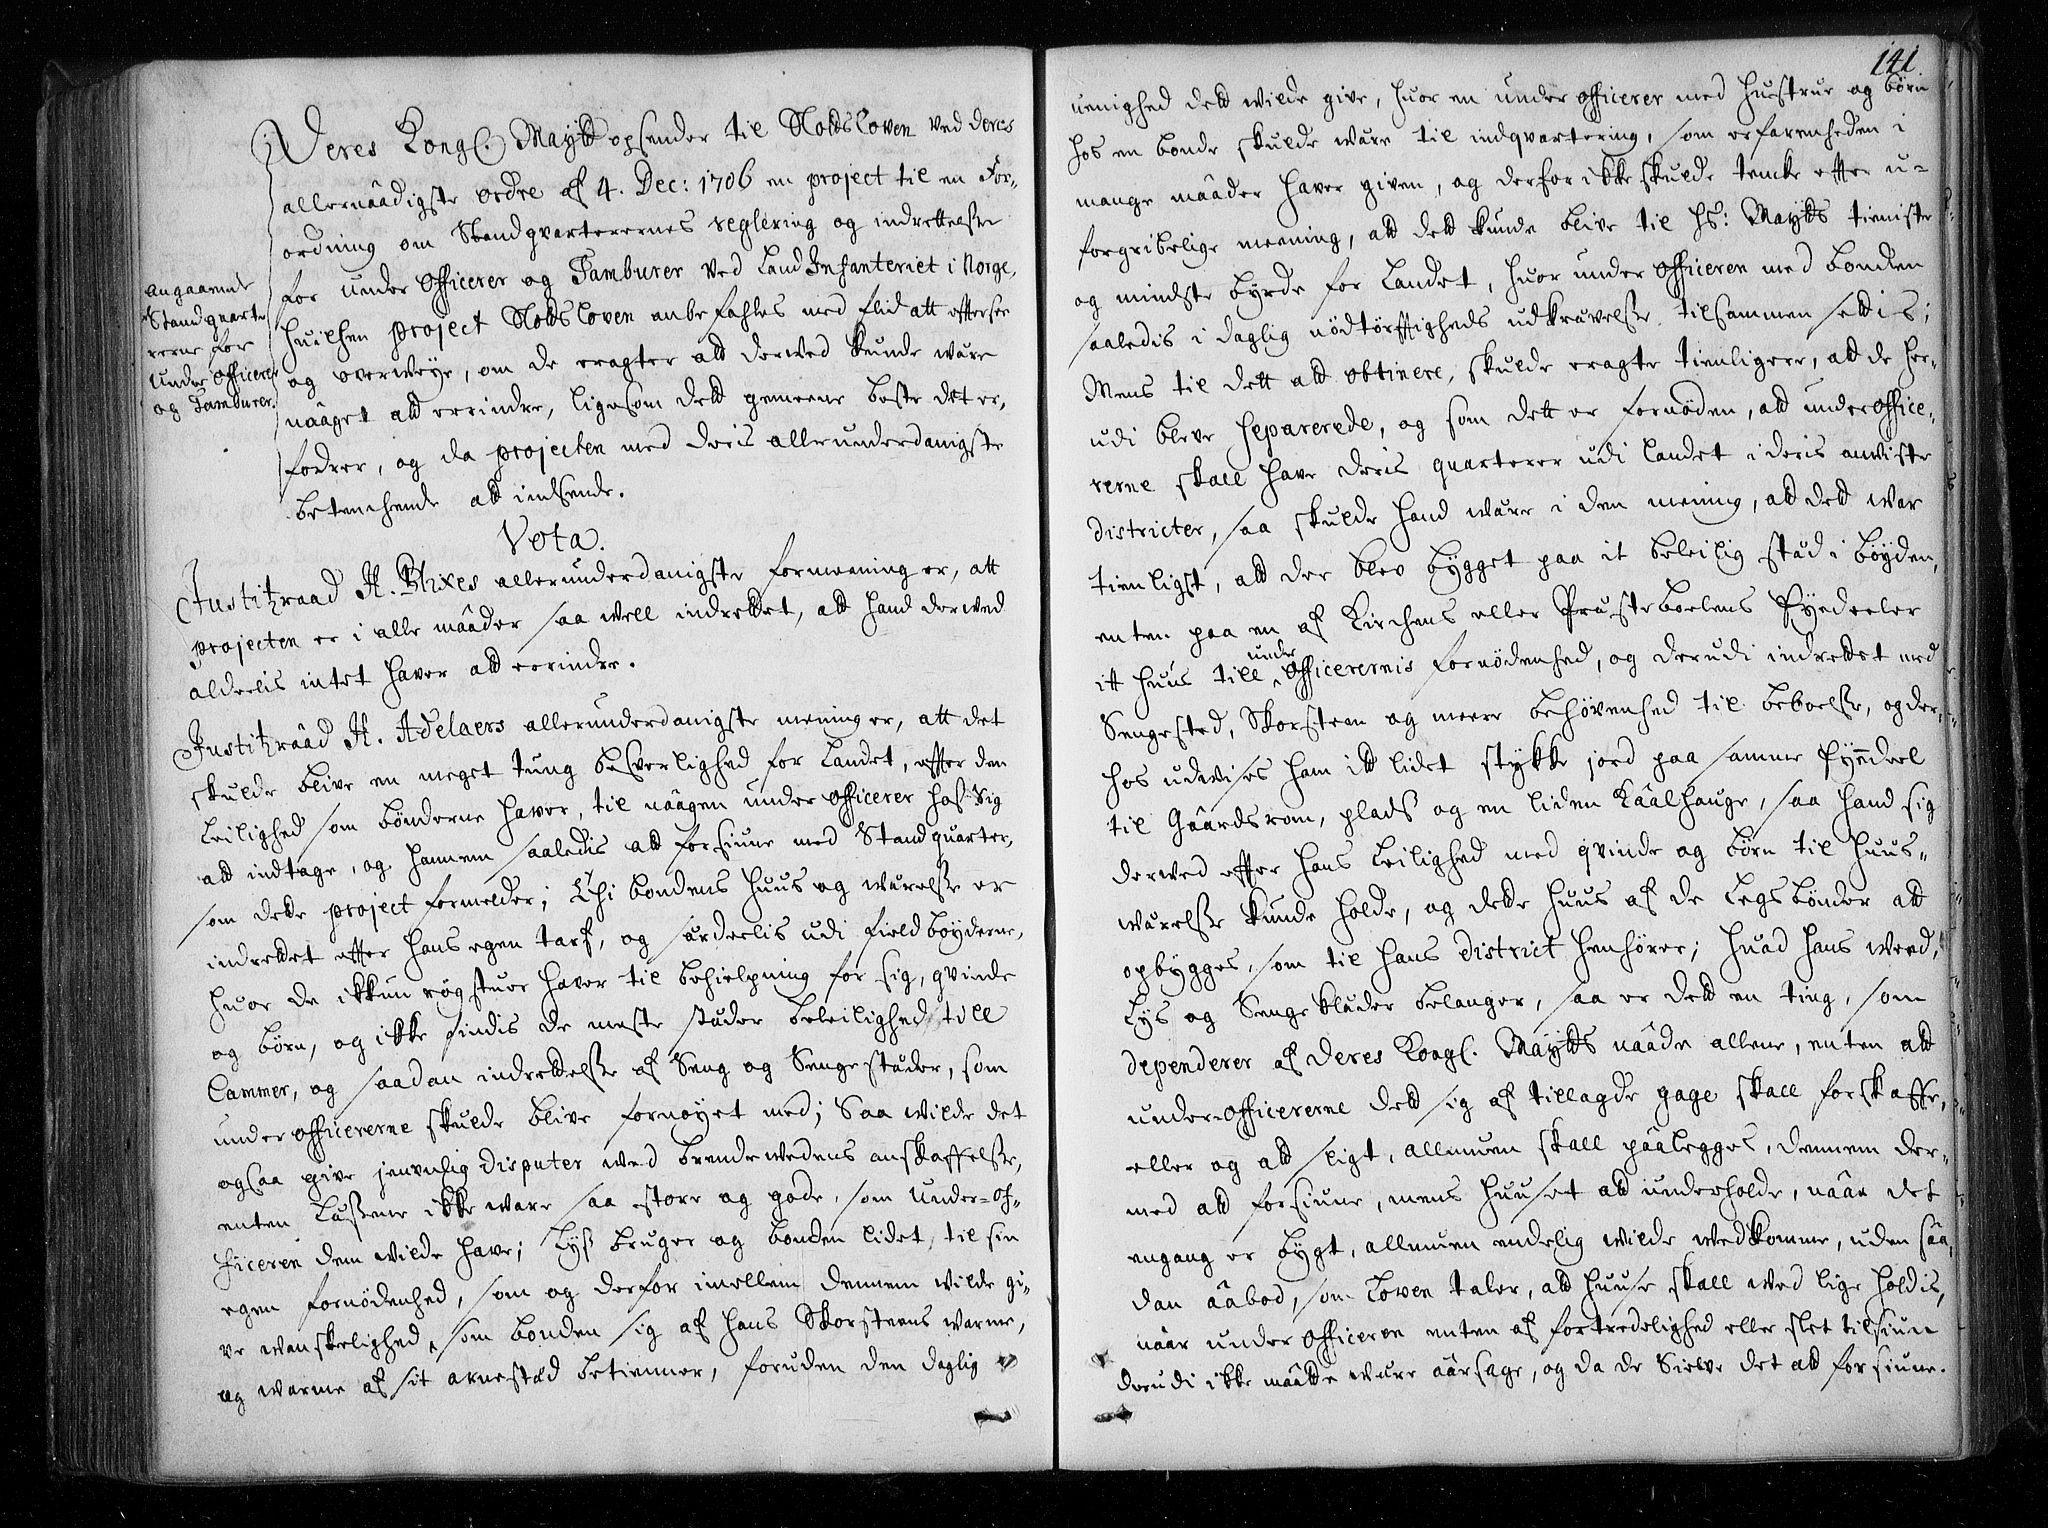 Deres Kongl. Maytt opsender til Slodsloven ved deres
allernaadigste ordre af 4. Dec: 1706 en project til en For-
ordning om Standqvarterernes reglering og indrettelse
for under Officerer og Tamburer ved Land Infanteriet i Norge,
Huilchen project Slodsloven anbefahles med flid att effterse
og overweye, om de eragter att derved kunde wære
nââget att erindre, ligesom dett gemeene beste det er,
fodrer, og da projecten med deris allerunderdanigste
betenchende att indsende.
Angaaende
Standqvarte
rerne for
Under Officerer
og Tamburer.
Vota.
Justitzraad H. Blixes allerunderdanigste formeening er, att
projecten er i alle mââder saa well indrettet, att hand derved
aldeelis intet haver att erindre.
Justitzrââd H. Adelaers allerunderdanigste mening er, att det
skulde blive en meget tung besverlighed for Landet, effter den
Leilighed som bønderne haver, til nâagen under Officerer hoss Sig
att indtage, og hannem saaledis att forsiune med Standquarter,
som dette project formelder; Thi bondens Huus og wærelse er
indrettet effter hans egen tarf, og særdeelis udi fieldbøyderne,
huor de ikkun røgstuer haver til behielpning for sig, qvinde
og børn, og ikke findis de meste stæder beleilighed till
Cammer, og saadan indrettelse af Seng og Sengestæder, som
under officererne skulde blive fornøyet med; Saa wilde det
ogsaa give jevnlig disputer wed brendewedens anskaffelse,
enten Lassene ikke ware saa store og gode, som Under-Of-
ficeren dem wilde have; Lyss bruger og bonden lidet til sin
egen fornødenhed, som og derfor imellem dennem wilde gi-
ve wanskelighed, som bonden sig af hans Skorsteens warme,
og warme af sit arnested betienner, foruden den daglig
141.
uenighed dett wilde give, huor en under officerer med Hustrue og børn
hos en bonde skulde wære til indqvartering, som erfarenheden i
mange mââder haver given, og derfor ikke skulde tencke effter u-
forgribelige meening, att dett kunde blive til Hs: Maytts tieniste
og mindste byrde for Landet, huor under officeren med bonden
saaledis i daglig nødtørfftigheds udkrævelse tilsammen settis;
Mens til dett att obtinere, skulde eragte tienligere, att de her-
udi bleve separerede, og som dett er fornøden, att under Office-
rerne skall have deris quarterer udi Landet i deris anviste
districter, saa skulde hand wære i den mening, att dett war
tienligst, att der blev bygget paa it beleilig stæd i bøyden,
enten paa en af Kirchens eller Præsteboelens Eyedeeler
itt Huus till under Officerernis fornødenhed, og derudi indrettet med
Sengested, Skorsteen og meere behøvenhed til beboelse, og der-
hos udvises ham itt lidet stykke jord paa samme Eyendeel
til Gâârdsrom, plads og en liden Kââlhauge, saa hand sig
derwed effter hans Leilighed med qvinde og børn til Huus-
wærelse kunde holde, og dette Huus af de Legsbønder att
opbygges, som til hans district henhører; Huad hans Weed,
Lys og Sengeklæder belanger, saa er dett en ting, som
dependerer af Deres Kongl. Maytts nââde allene, enten att
under-Officererne dett sig af tillagde gage skall forskaffe,
eller og att sligt, allmuen skall pââlegges, dennem der-
med att forsiune, mens Huuset att underholde, nââr det
engang er bygt, allmuen endelig wilde wedkomme, uden sâa-
dan ââbod, som Loven taler, att Huuse skall wed lige holdis,
nââr under Officeren enten af fortredelighed eller slet tilsiun
derudi ikke mââtte være âârsage, og da de Sielve det att forsiune.